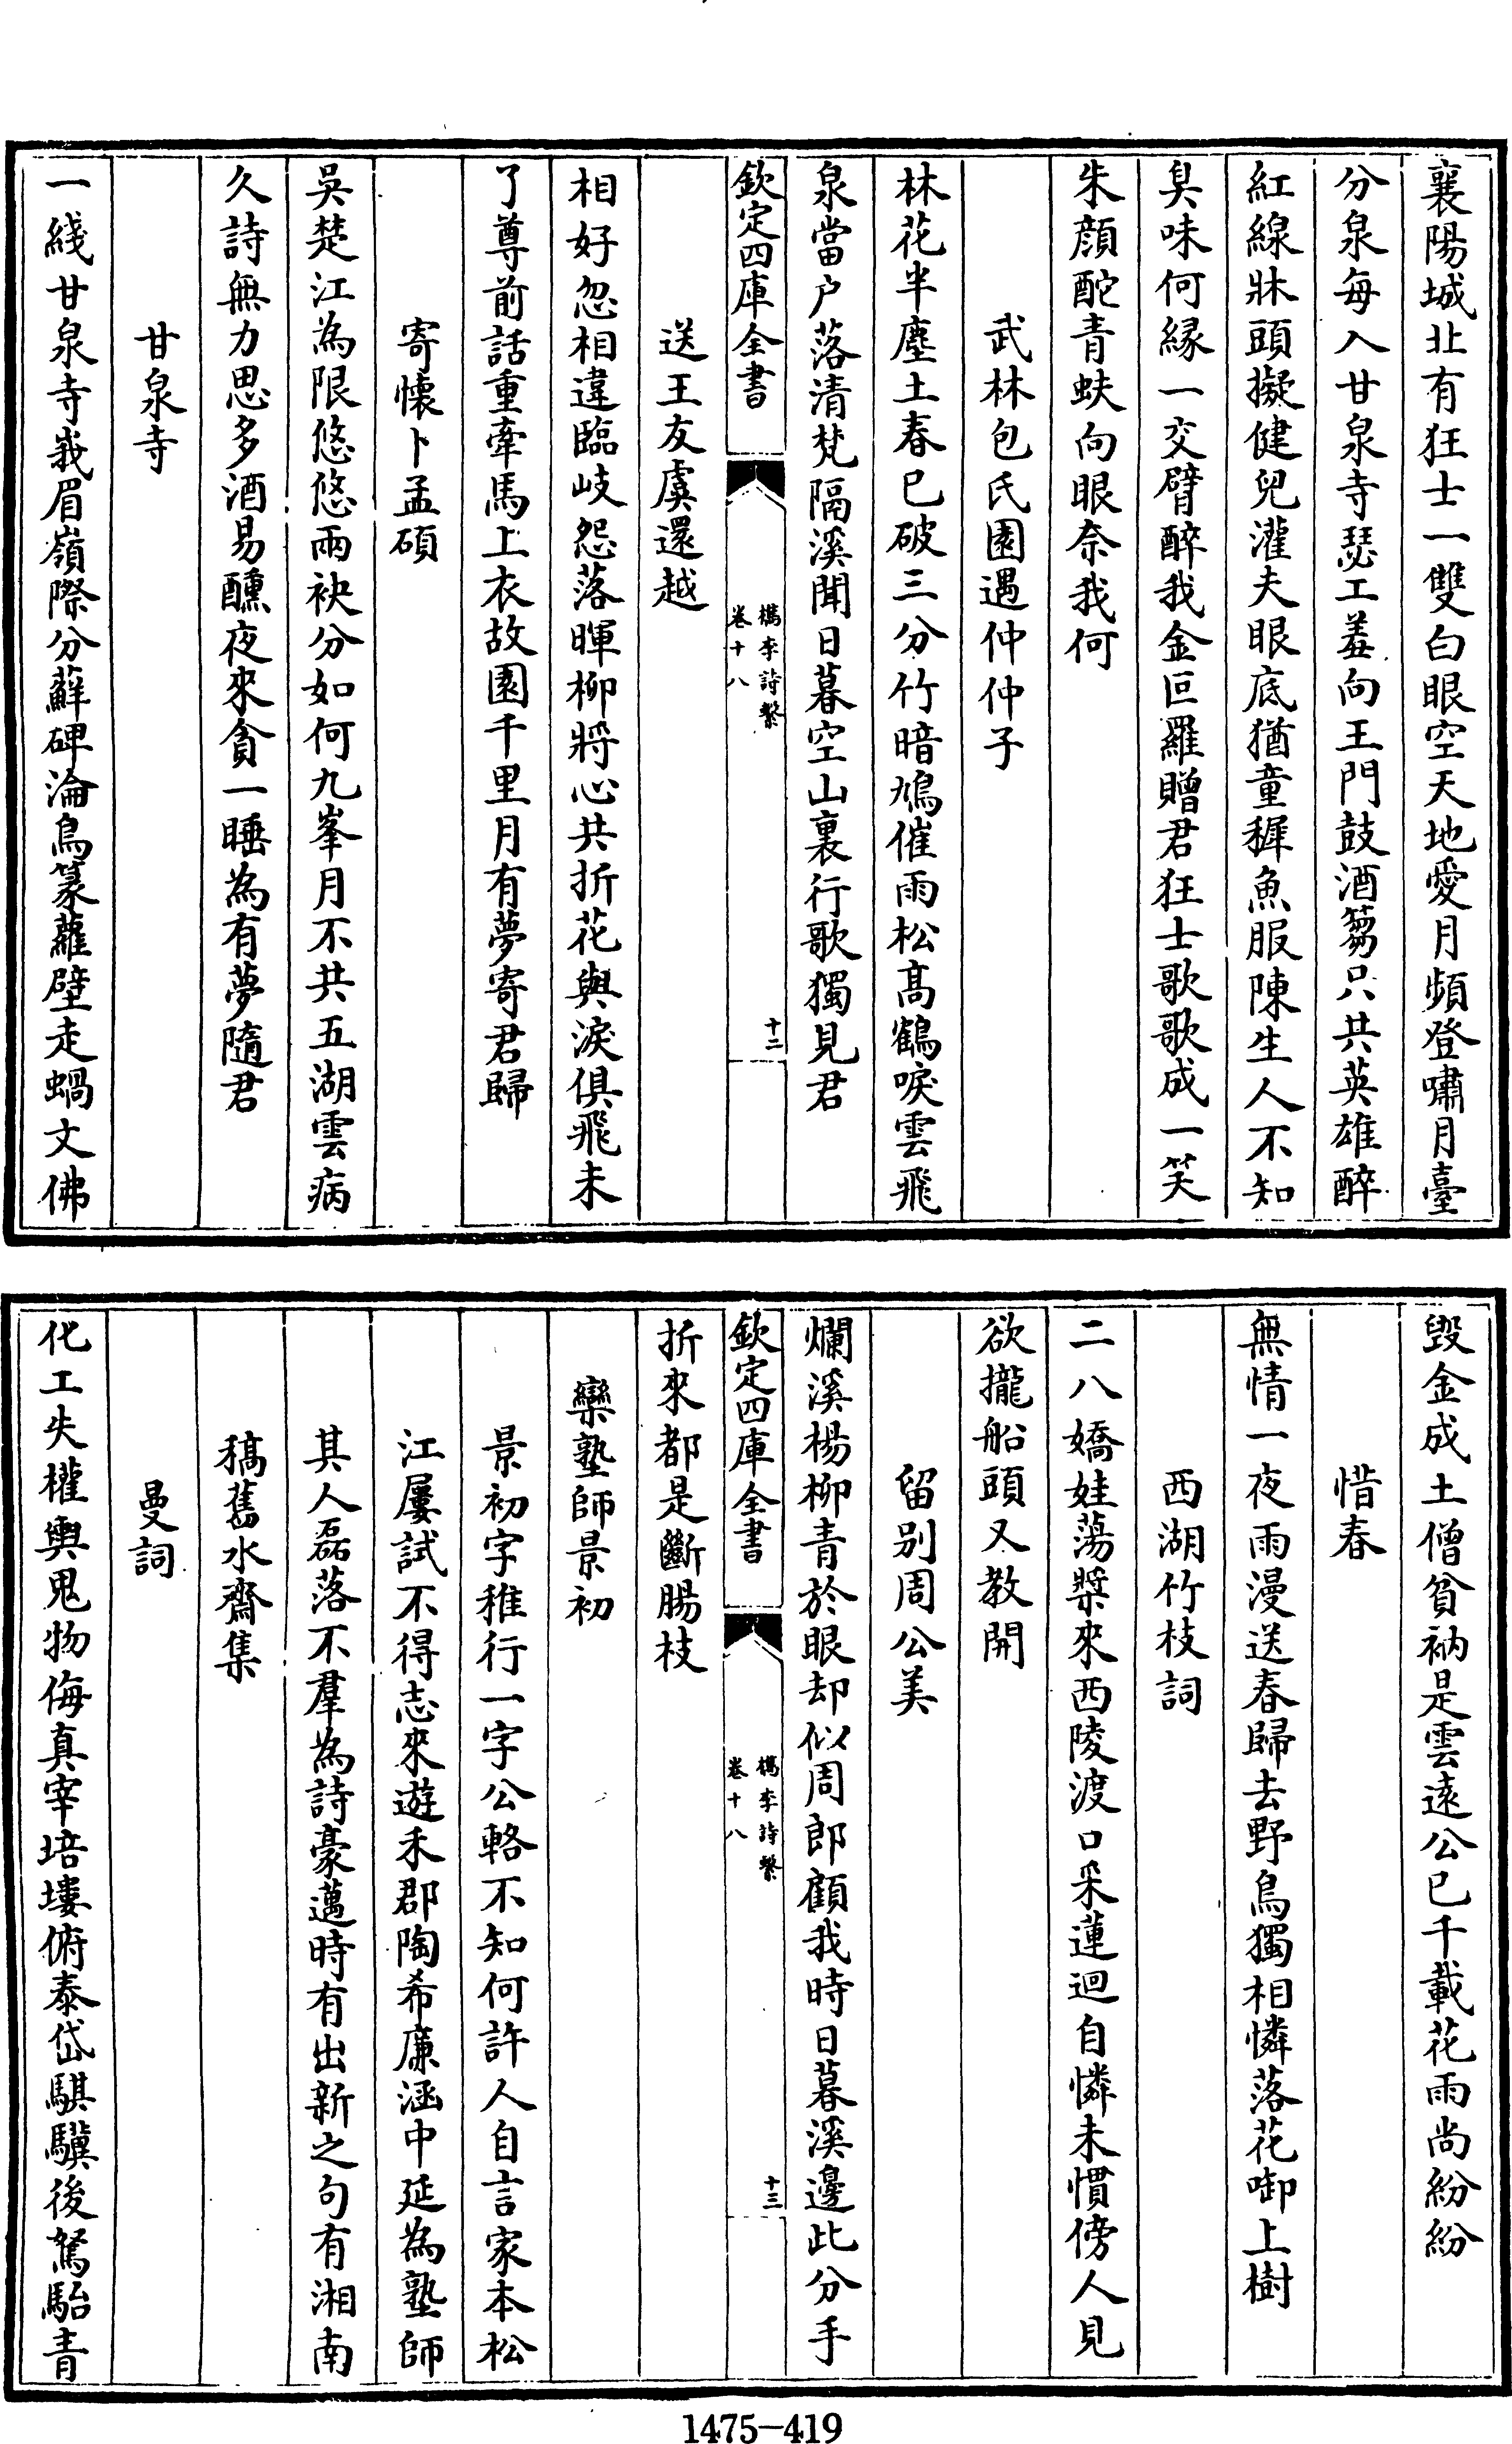 襄陽城北有狂士一雙白眼空天地愛月頻登嘯月臺
分泉每入甘泉寺瑟工羞向王門鼓酒蒭只共英雄醉
紅線牀頭擬健兒灌夫眼底猶童穉魚服陳生人不知
臭味何緣一交臂醉我金叵羅贈君狂士歌歌成一笑
朱顔酡青蚨向眼奈我何
武林包氏園遇仲仲子
林花半塵土春已破三分竹暗鳩催雨松髙鶴唳雲飛
泉當户落清梵隔溪聞日暮空山裏行歌獨見君
欽定四庫全書
檇李詩繫
卷十八
十二
送王友虞還越
相好忽相違臨岐怨落暉柳將心共折花與淚俱飛未
了尊前話重牽馬上衣故園千里月有夢寄君歸
寄懷卜孟碩
吳楚江為限悠悠兩袂分如何九峯月不共五湖雲病
久詩無力思多酒易醺夜來貪一睡為有夢隨君
甘泉寺
一綫甘泉寺峩眉嶺際分蘚碑淪鳥篆蘿壁走蝸文佛
毁金成土僧貧衲是雲遠公已千載花雨尚紛紛
惜春
無情一夜雨漫送春歸去野鳥獨相憐落花啣上樹
西湖竹枝詞
二八嬌娃蕩槳來西陵渡口采蓮迴自憐未慣傍人見
欲攏船頭又教開
留别周公美
爛溪楊柳青於眼却似周郎顧我時日暮溪邊此分手
欽定四庫全書
檇李詩繫
卷十八
十三
折來都是斷腸枝
欒塾師景初
景初字稚行一字公輅不知何許人自言家本松
江屢試不得志來遊禾郡陶希廉涵中延為塾師
其人磊落不羣為詩豪邁時有出新之句有湘南
稿舊水齋集
曼詞
化工失權輿鬼物侮真宰培塿俯泰岱騏驥後駑駘青
1475-419